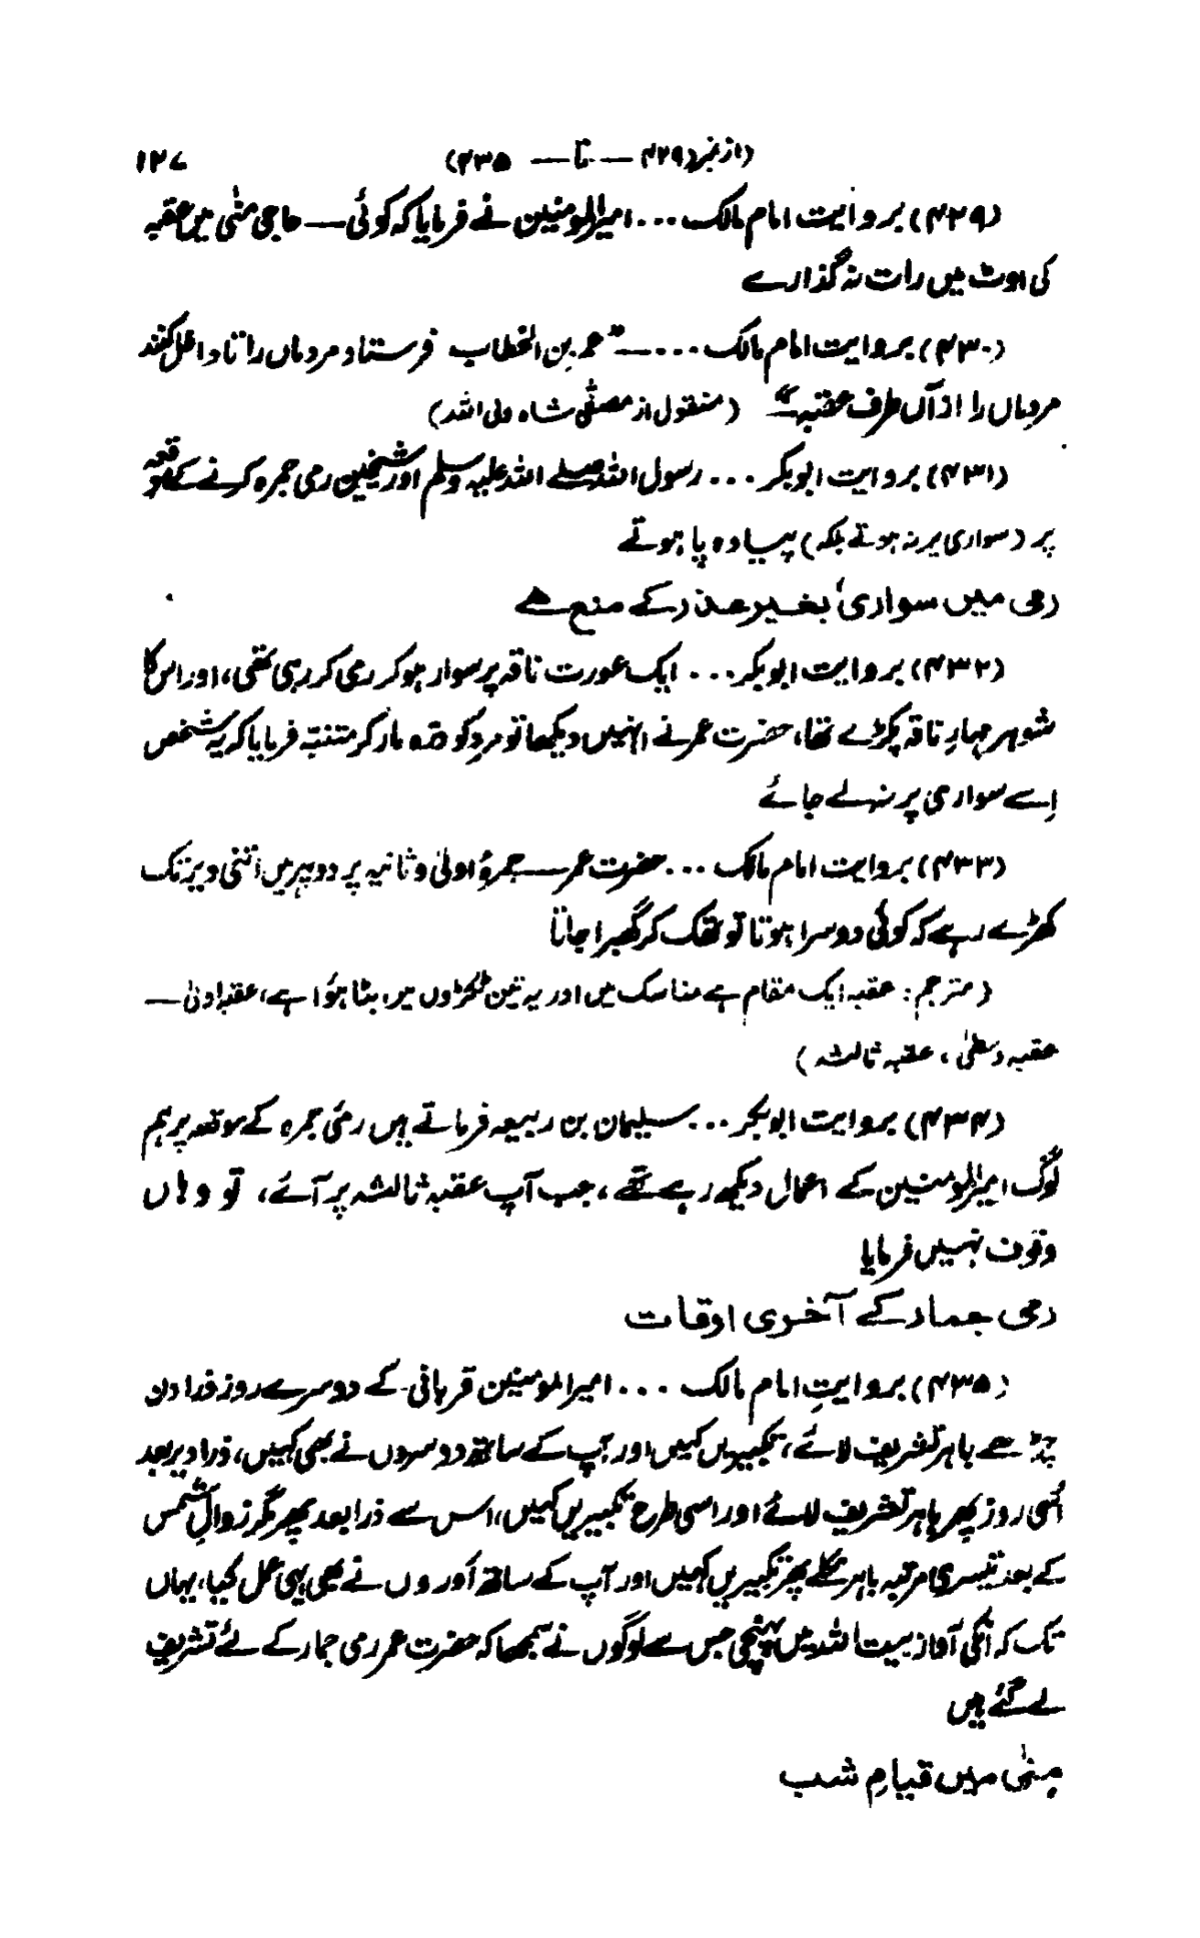 (از نمبر (۴۲۹ — تا — ۴۳۵) ۱۲۷
(۴۲۹) بروایت امام مالک ... امیرالمومنین نے فرمایا کہ کوئی — حاجی منیٰ میں عقبہ
کی اوٹ میں رات نہ گذارے
(۴۳۰) بروایت امام مالک ...۔ — "عمر بن الخطاب فرستاد مردماں را تا داخل کنند
مردماں را از آں طرف عقبہ" (منقول از مصفّٰی شاہ ولی اللہ)
(۴۳۱) بروایت ابوبکر ... رسول اللہ صلے اللہ علیہ وسلم اور شیخین رمی جمرہ کرنے کے موقعہ
پر (سواری پر نہ ہوتے بلکہ) پیادہ پا ہوتے
رمی میں سواری بغیر عذر کے منع ہے
(۴۳۲) بروایت ابوبکر ... ایک عورت ناقہ پر سوار ہو کر رمی کر رہی تھی، اور اس کا
شوہر مہارِ ناقہ پکڑے تھا، حضرت عمر نے انہیں دیکھا تو مرد کو درّہ مار کر متنبّہ فرمایا کہ یہ شخص
اِسے سواری پر نہ لے جائے
(۴۳۳) بروایت امام مالک ... حضرت عمر — جمرۂ اولیٰ و ثانیہ پر دوپہر میں اتنی دیر تک
کھڑے رہے کہ کوئی دوسرا ہوتا تو تھک کر گھبرا جاتا
(مترجم: عقبہ ایک مقام ہے مناسک میں اور یہ تین ٹکڑوں میں بٹا ہوٗا ہے، عقبہ اولیٰ —
عقبہ وسطیٰ، عقبہ ثالثہ)
(۴۳۴) بروایت ابوبکر ... سلیمان بن ربیعہ فرماتے ہیں رمی جمرہ کے موقعہ پر ہم
لوگ امیرالمومنین کے اعمال دیکھ رہے تھے، جب آپ عقبہ ثالثہ پر آئے، تو وہاں
وقوف نہیں فرمایا
رمی جمار کے آخری اوقات
(۴۳۵) بروایتِ امام مالک ... امیرالمومنین قربانی کے دوسرے روز ذرا دن
چڑھے باہر تشریف لائے، تکبیریں کہیں اور آپ کے ساتھ دوسروں نے بھی کہیں، ذرا دیر بعد
اُسی روز پھر باہر تشریف لائے اور اسی طرح تکبیریں کہیں، اس سے ذرا بعد پھر مگر زوالِ شمس
کے بعد تیسری مرتبہ باہر نکلے پھر تکبیریں کہیں اور آپ کے ساتھ اَوروں نے بھی یہی عمل کیا، یہاں
تک کہ انکی آواز بیت اللہ میں پہنچی جس سے لوگوں نے سمجھا کہ حضرت عمر رمی جمار کے لئے تشریف
لے گئے ہیں
مِنٰی میں قیامِ شب